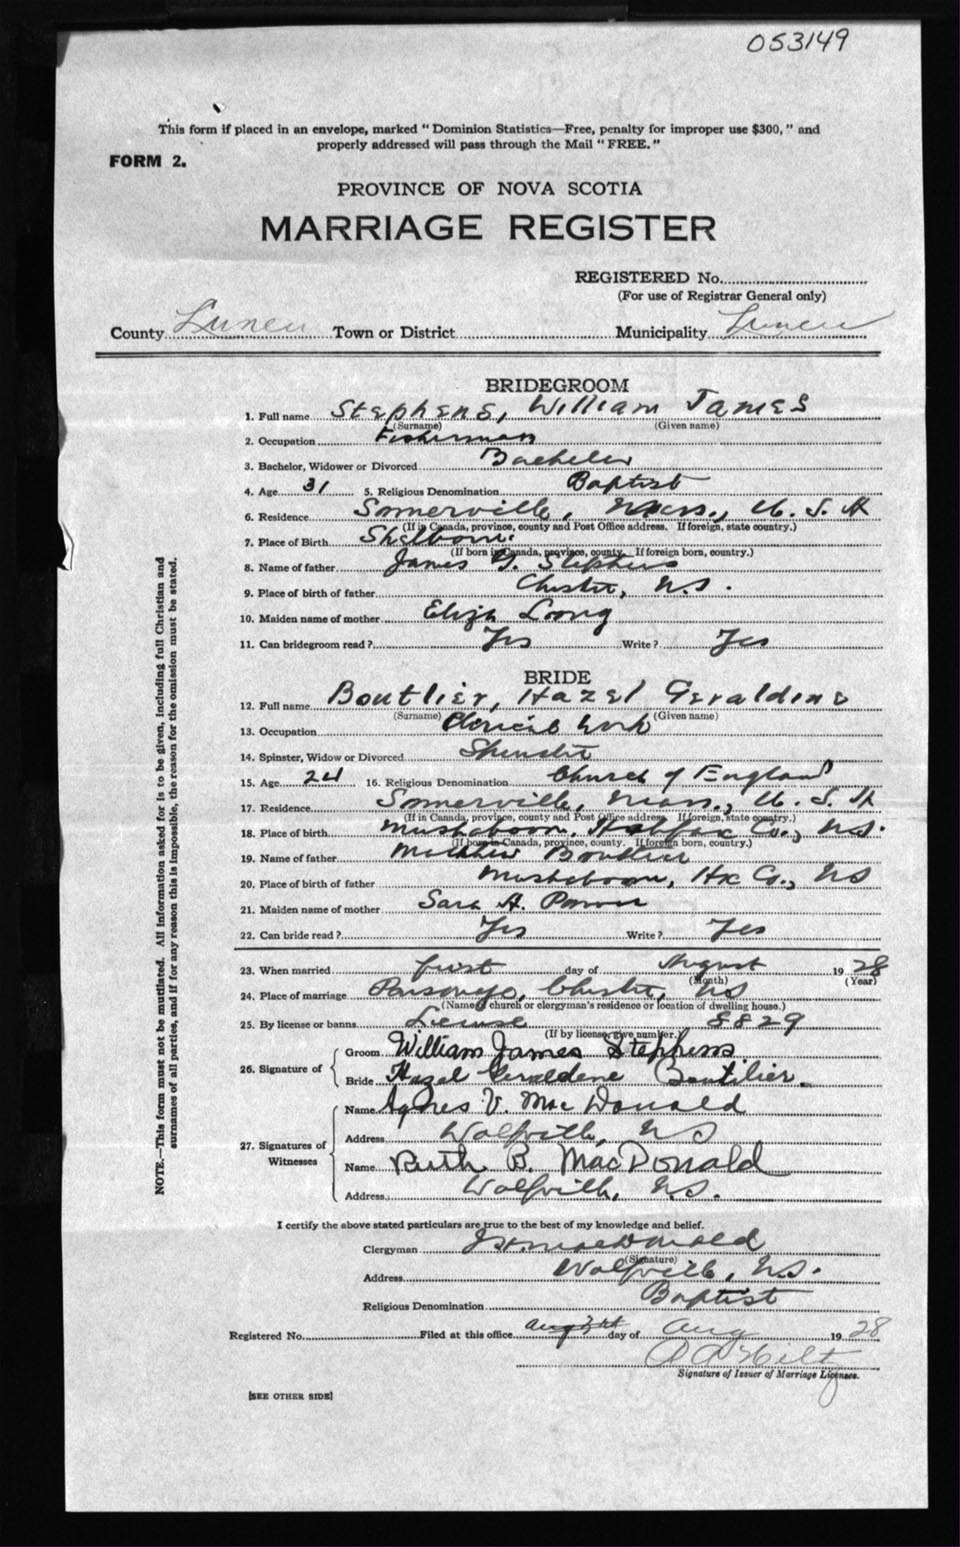 053149
This form if placed in an envelope, marked "Dominion Statistics—Free, penalty for improper use $300," and
properly addressed will pass through the Mail "FREE."
FORM 2.
PROVINCE OF NOVA SCOTIA
MARRIAGE REGISTER
REGISTERED No.
(For use of Registrar General only)
County Lunen Town or District Municipality Lunen
BRIDEGROOM
1. Full name Stephens, William James
(Surname) (Given name)
2. Occupation Fisherman
3. Bachelor, Widower or Divorced Bachelor
4. Age 31 5. Religious Denomination Baptist
6. Residence Somerville, Mass., U. S. A
(If in Canada, province, county and Post Office address. If foreign, state country.)
7. Place of Birth Shelborne
(If born in Canada, province, county. If foreign born, country.)
8. Name of father James Stephens
9. Place of birth of father Chester, N.S.
10. Maiden name of mother Eliza Loong
11. Can bridegroom read? Yes Write? Yes
BRIDE
12. Full name Boutlier, Hazel Geraldine
(Surname) (Given name)
13. Occupation Clerical work
14. Spinster, Widow or Divorced Spinster
15. Age 24 16. Religious Denomination Church of England
17. Residence Somerville, Mass., U. S. A
(If in Canada, province, county and Post Office address. If foreign, state country.)
18. Place of birth Mushaboom, Halifax Co., N.S.
(If born in Canada, province, county. If foreign born, country.)
19. Name of father Matthew Boutlier
20. Place of birth of father Mushaboom, Hx Co., NS
21. Maiden name of mother Sara A. Power
22. Can bride read? Yes Write? Yes
23. When married first day of August 1928
(Month) (Year)
24. Place of marriage Parsonage, Chester, NS
(Name of church or clergyman's residence or location of dwelling house.)
25. By license or banns License 8829
(If by license, give number.)
26. Signature of
Groom William James Stephens
Bride Hazel Geraldene Boutilier.
27. Signatures of
Witnesses
Name Agnes V. MacDonald
Address Wolfville, NS
Name Ruth B. MacDonald
Address Wolfville, NS.
I certify the above stated particulars are true to the best of my knowledge and belief.
Clergyman MacDonald
(Signature)
Address Wolfville, N.S.
Religious Denomination Baptist
Registered No. Filed at this office day of Aug 1928
Hilt
Signature of Issuer of Marriage Licenses.
[SEE OTHER SIDE]
NOTE.—This form must not be mutilated. All information asked for is to be given, including full Christian and
surnames of all parties, and if for any reason this is impossible, the reason for the omission must be stated.